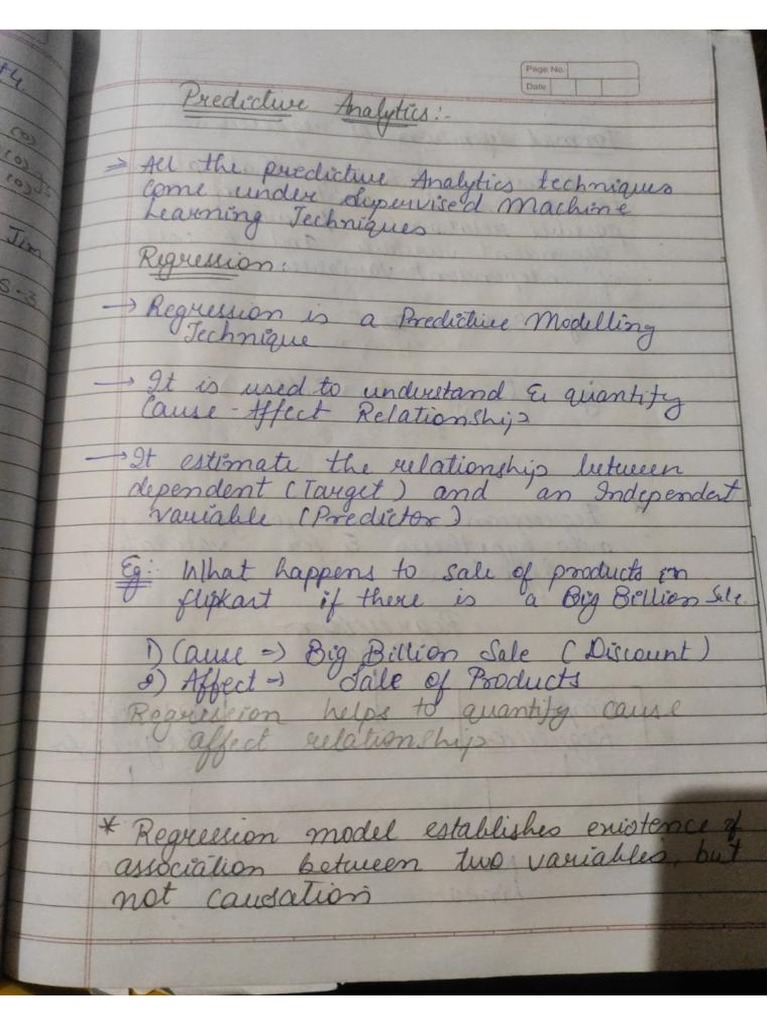 t4
(0)
(0)
(0)
Jim
S-3
Page No.
Date
Predictive Analytics:-
⇒ All the predictive Analytics techniques
come under Supervised Machine
Learning Techniques
Regression:
→ Regression is a Predictive Modelling
Technique
→ It is used to understand & quantify
Cause-Affect Relationship
→ It estimate the relationship between
dependent (Target) and an Independent
variable (Predictor)
Eg:- What happens to sale of products in
flipkart if there is a Big Billion Sale.
1) Cause ⇒ Big Billion Sale (Discount)
2) Affect ⇒ Sale of Products
Regression helps to quantify cause
affect relationship
* Regression model establishes existence of
association between two variables, but
not causation